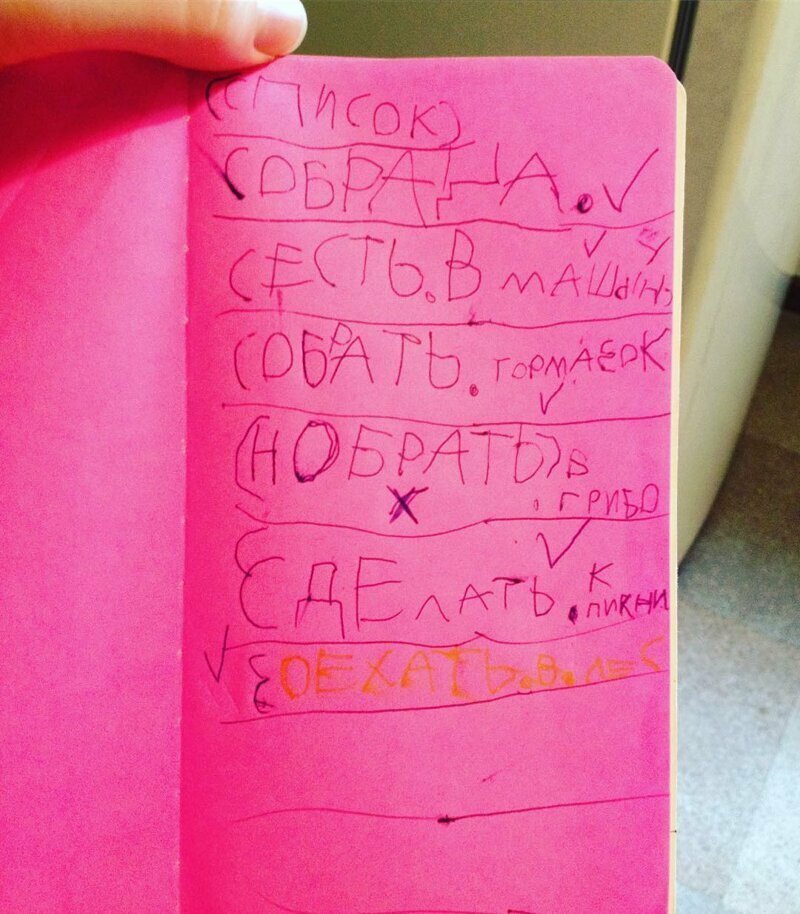 (СПИСОК)
СОБРАЦА. ✓
СЕСТЬ.В МАШЫНУ ✓
СОБРАТЬ. ТОРМАЗОК ✓
(НОБРАТЬ) В
.ГРИБО
ЗДЕЛАТЬ. К
ПИКНИ ✓
✓ ЗОЕХАТЬ.В.ЛЕС